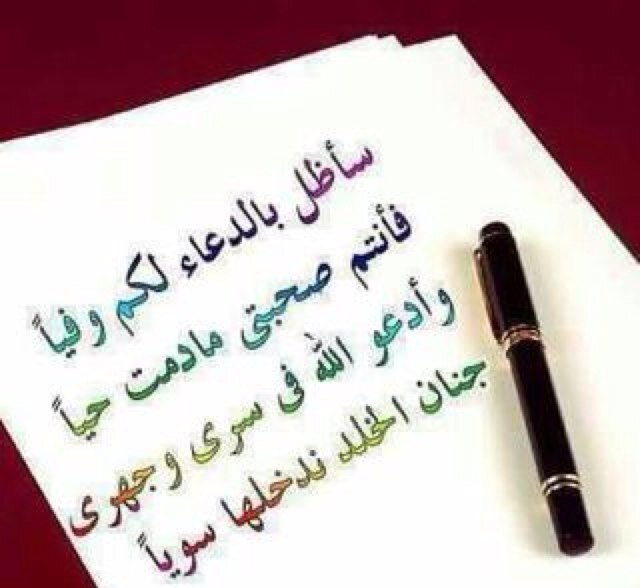 سأظل بالدعاء لكم وفياً
فأنتم صحبتى مادمت حياً
وأدعو الله فى سرى وجهرى
جنان الخلد ندخلها سوياً